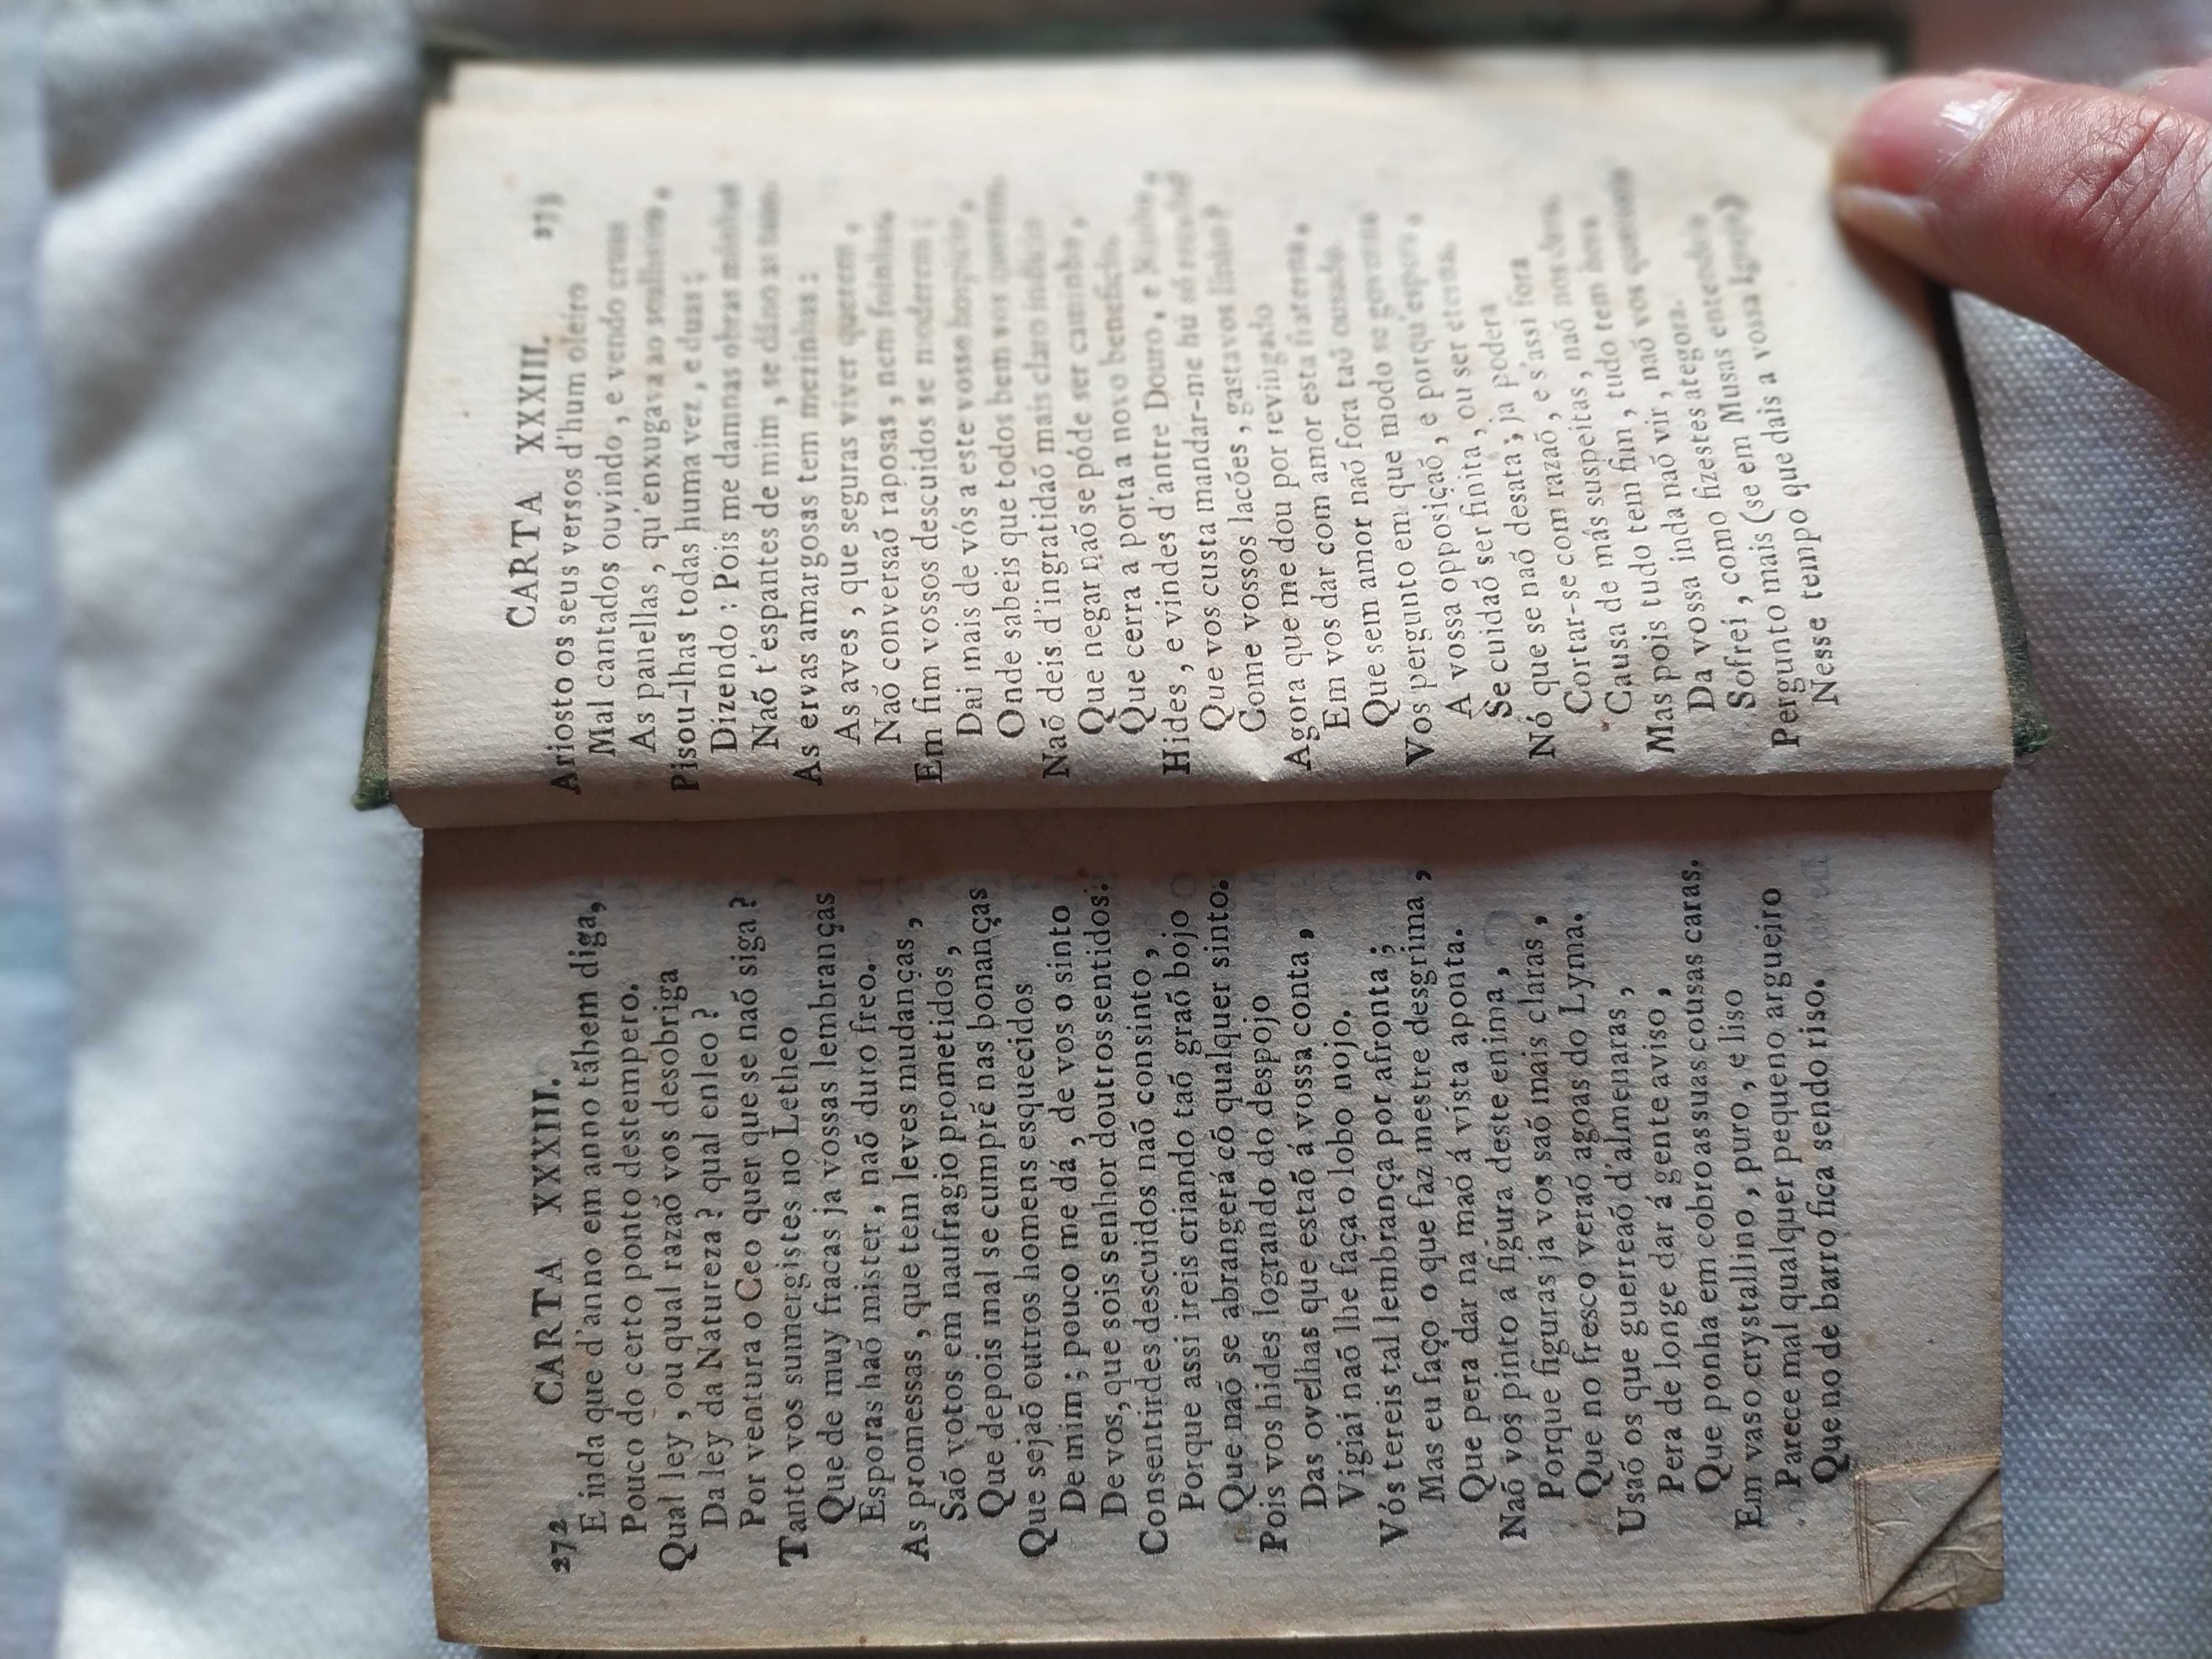 272 CARTA XXXIII.
E inda que d'anno em anno tãbem diga,
Pouco do certo ponto destempero.
Qual ley, ou qual razaõ vos desobriga
Da ley da Natureza? qual enleo?
Por ventura o Ceo quer que se naõ siga?
Tanto vos sumergistes no Letheo
Que de muy fracas ja vossas lembranças
Esporas haõ mister, naõ duro freo.
As promessas, que tem leves mudanças,
Saõ votos em naufragio prometidos,
Que depois mal se cumprẽ nas bonanças
Que sejaõ outros homens esquecidos
De mim; pouco me dá, de vos o sinto
De vos, que sois senhor doutros sentidos.
Consentirdes descuidos naõ consinto,
Porque assi ireis criando taõ graõ bojo
Que naõ se abrangerá cõ qualquer sinto.
Pois vos hides logrando do despojo
Das ovelhas que estaõ á vossa conta,
Vigiai naõ lhe faça o lobo nojo.
Vós tereis tal lembrança por afronta;
Mas eu faço o que faz mestre desgrima,
Que pera dar na maõ á vista aponta.
Naõ vos pinto a figura deste enima,
Porque figuras ja vos saõ mais claras,
Que no fresco veraõ agoas do Lyma.
Usaõ os que guerreaõ d'almenaras,
Pera de longe dar á gente aviso,
Que ponha em cobro as suas cousas caras.
Em vaso crystallino, puro, e liso
Parece mal qualquer pequeno argueiro
Que no de barro fica sendo riso.
CARTA XXXIII. 273
Ariosto os seus versos d'hum oleiro
Mal cantados ouvindo, e vendo cruas
As panellas, qu'enxugava ao soalheiro,
Pisou-lhas todas huma vez, e duas;
Dizendo: Pois me damnas obras minhas
Naõ t'espantes de mim, se dãno as tuas.
As ervas amargosas tem mezinhas:
As aves, que seguras viver querem,
Naõ conversaõ raposas, nem foinhas.
Em fim vossos descuidos se moderem;
Dai mais de vós a este vosso hospicio,
Onde sabeis que todos bem vos querem.
Naõ deis d'ingratidaõ mais claro indicio
Que negar naõ se póde ser caminho,
Que cerra a porta a novo beneficio.
Hides, e vindes d'antre Douro, e Minho,
Que vos custa mandar-me hũ só
Come vossos lacões, gastavos linho?
Agora que me dou por revingado
Em vos dar com amor esta fraterna,
Que sem amor naõ fora taõ ousado.
Vos pergunto em que modo se governa
A vossa opposiçaõ, e porqu'espera,
Se cuidaõ ser finita, ou ser eterna.
Nó que se naõ desata; ja podera
Cortar-se com razaõ, e s'assi fora
Causa de más suspeitas, naõ nos dera.
Mas pois tudo tem fim, tudo tem hora
Da vossa inda naõ vir, naõ vos
Sofrei, como fizestes ategora.
Pergunto mais (se em Musas entendeis
Nesse tempo que dais a vossa Igreja)